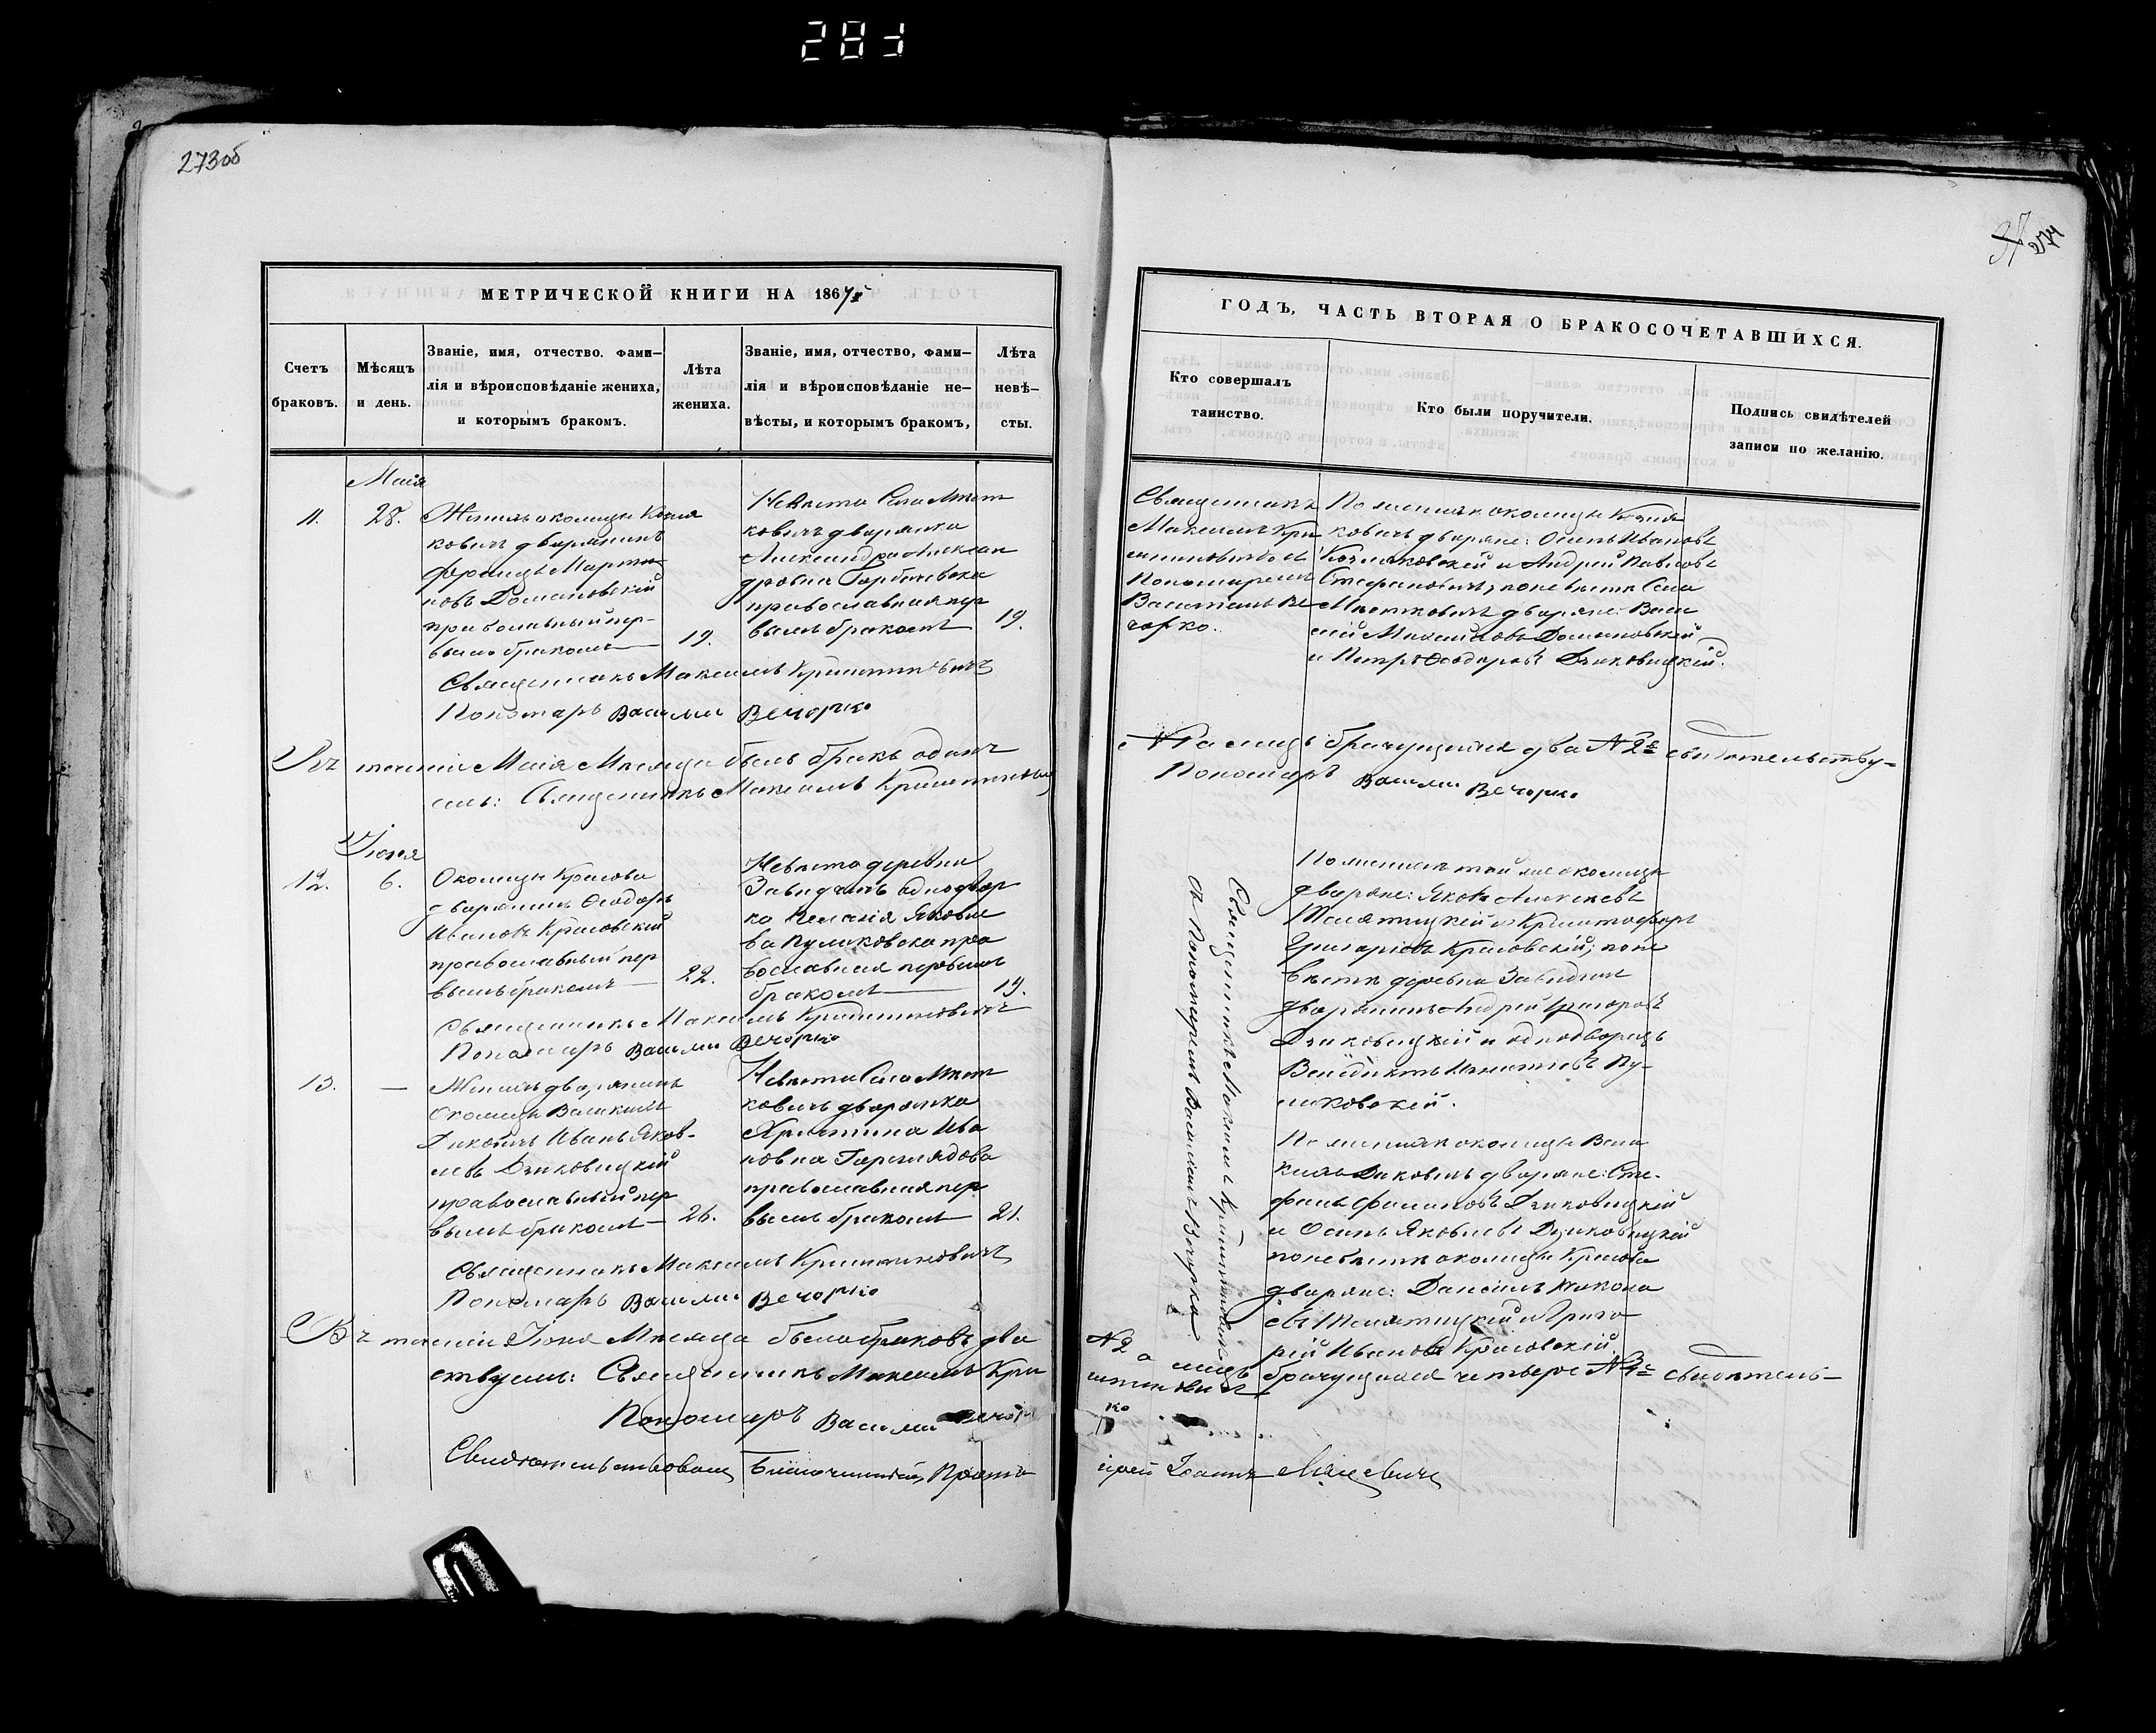 281
273об
37 274
МЕТРИЧЕСКОЙ КНИГИ НА 1867й
Счетъ браковъ.
Мѣсяцъ и день.
Званіе, имя, отчество. фами-
лія и вѣроисповѣданіе жениха,
и которымъ бракомъ.
Лѣта
жениха.
Званіе, имя, отчество, фами-
лія и вѣроисповѣданіе не-
вѣсты, и которымъ бракомъ,
Лѣта
невѣ-
сты.
Маія
11.
28.
Жених околицы Кочня
ковичъ дворянинъ
Францъ Марти
новъ Домановскій
православный пер-
вымъ бракомъ
19.
Невѣста Села Мѣст
ковичъ дворянка
Александра Алексан
дровна Горбачевска
православная пер
вымъ бракомъ
19.
Священникъ Максимъ Криштиновичъ
Пономарь Василий Вечорко
Въ теченіи Маія Мѣсяца былъ бракъ одинъ
емъ: Священникъ Максимъ Криштинович
Іюня
12.
6.
Околицы Красова
дворянинъ Ѳеодоръ
Ивановъ Красовскій
православный пер
вымъ бракомъ
22.
Невѣста деревни
Завидчичъ однодвор
ка Пелагія Яковле
ва Куликовска пра
вославная первымъ
бракомъ
19.
Священникъ Максимъ Криштиновичъ
Пономарь Василий Вечорко
13.
—
Женихъ дворянинъ
Околицы Великихъ
Диковичъ Иванъ Яков-
левъ Дзиковицкій
православный пер
вымъ бракомъ
26.
Невѣста Села Мѣст
ковичъ дворянка
Христина Ива
новна
православная пер
вымъ бракомъ
21.
Священникъ Максимъ Криштиновичъ
Пономарь Василий Вечорко
Въ теченіи Іюня Мѣсяца было браковъ два
ствуемъ: Священникъ Максимъ Кри
Пономарь Василий Вечор
Свидѣтельствовалъ Благочинный, Прото
ГОДЪ, ЧАСТЬ ВТОРАЯ О БРАКОСОЧЕТАВШИХСЯ.
Кто совершалъ
таинство.
Кто были поручители.
Подпись свидѣтелей
записи по желанію.
Священникъ
Максимъ Кри
штиновичъ съ
Пономаремъ
Василіемъ Ве
чорко.
По женихѣ околицы Кочня
ковичъ дворяне: Осипъ Ивановъ
и Андрей Павловъ
Стефановичъ, по невѣстѣ Села
Мѣстковичъ дворяне: Васи
лій Михайловъ Домановскій
и Петръ Ѳеодоровъ Дзиковицкій.
№1 а лицъ брачущихся два №2е свидѣтельству-
Пономарь Василий Вечорко
Священникъ Максимъ Криштиновичъ
съ Пономаремъ Василіемъ Вечорко
По женихѣ той же околицы
дворяне: Яковъ Алексѣевъ
Телятицкій и Криштофоръ
Григоріевъ Красовскій; по не
вѣстѣ деревни Завидчичъ
дворянинъ Андрей Григоровъ
Дзиковицкій и однодворецъ
Венедиктъ Игнатіевъ Ку-
ликовскій.
По женихѣ околицы Вели
кихъ Диковичъ дворяне: Сте-
фанъ Дзиковицкій
и Осипъ Яковлевъ Дзиковицкій
по невѣстѣ околицы Красова
дворяне: Даніилъ Никона
евъ Телятицкій и Григо
рій Ивановъ Красовскій.
№2 а лицъ брачущихся четверо №4е свидѣтель-
штиновичъ
ко
іерей Іоаннъ